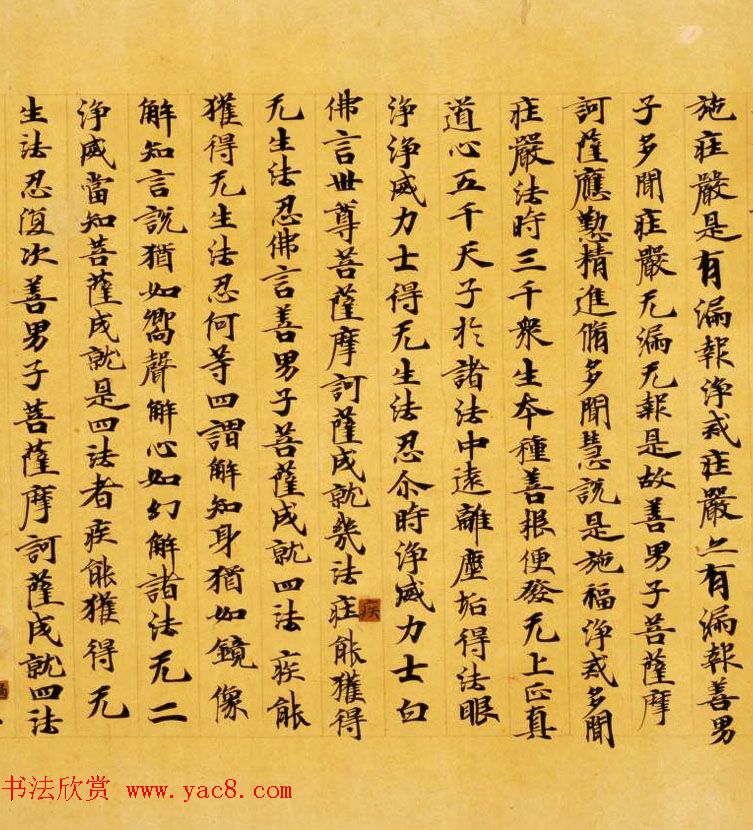 施庄嚴是有漏報淨戒庄嚴亦有漏報善男
子多聞庄嚴无漏无報是故善男子菩薩摩
訶薩應懃精進脩多聞慧說是施福淨戒多聞
庄嚴法時三千衆生夲種善根便發无上正真
道心五千天子於諸法中遠離塵垢得法眼
淨淨威力士得无生法忍尒時淨威力士白
疾
佛言世尊菩薩摩訶薩成就幾法庄能獲得
无生法忍佛言善男子菩薩成就四法疾能
獲得无生法忍何等四謂解知身猶如鏡像
解知言說猶如嚮聲解心如幻解諸法无二
淨威當知菩薩成就是四法者疾能獲得无
生法忍復次善男子菩薩摩訶薩成就四法
书法欣赏 www.yac8.com